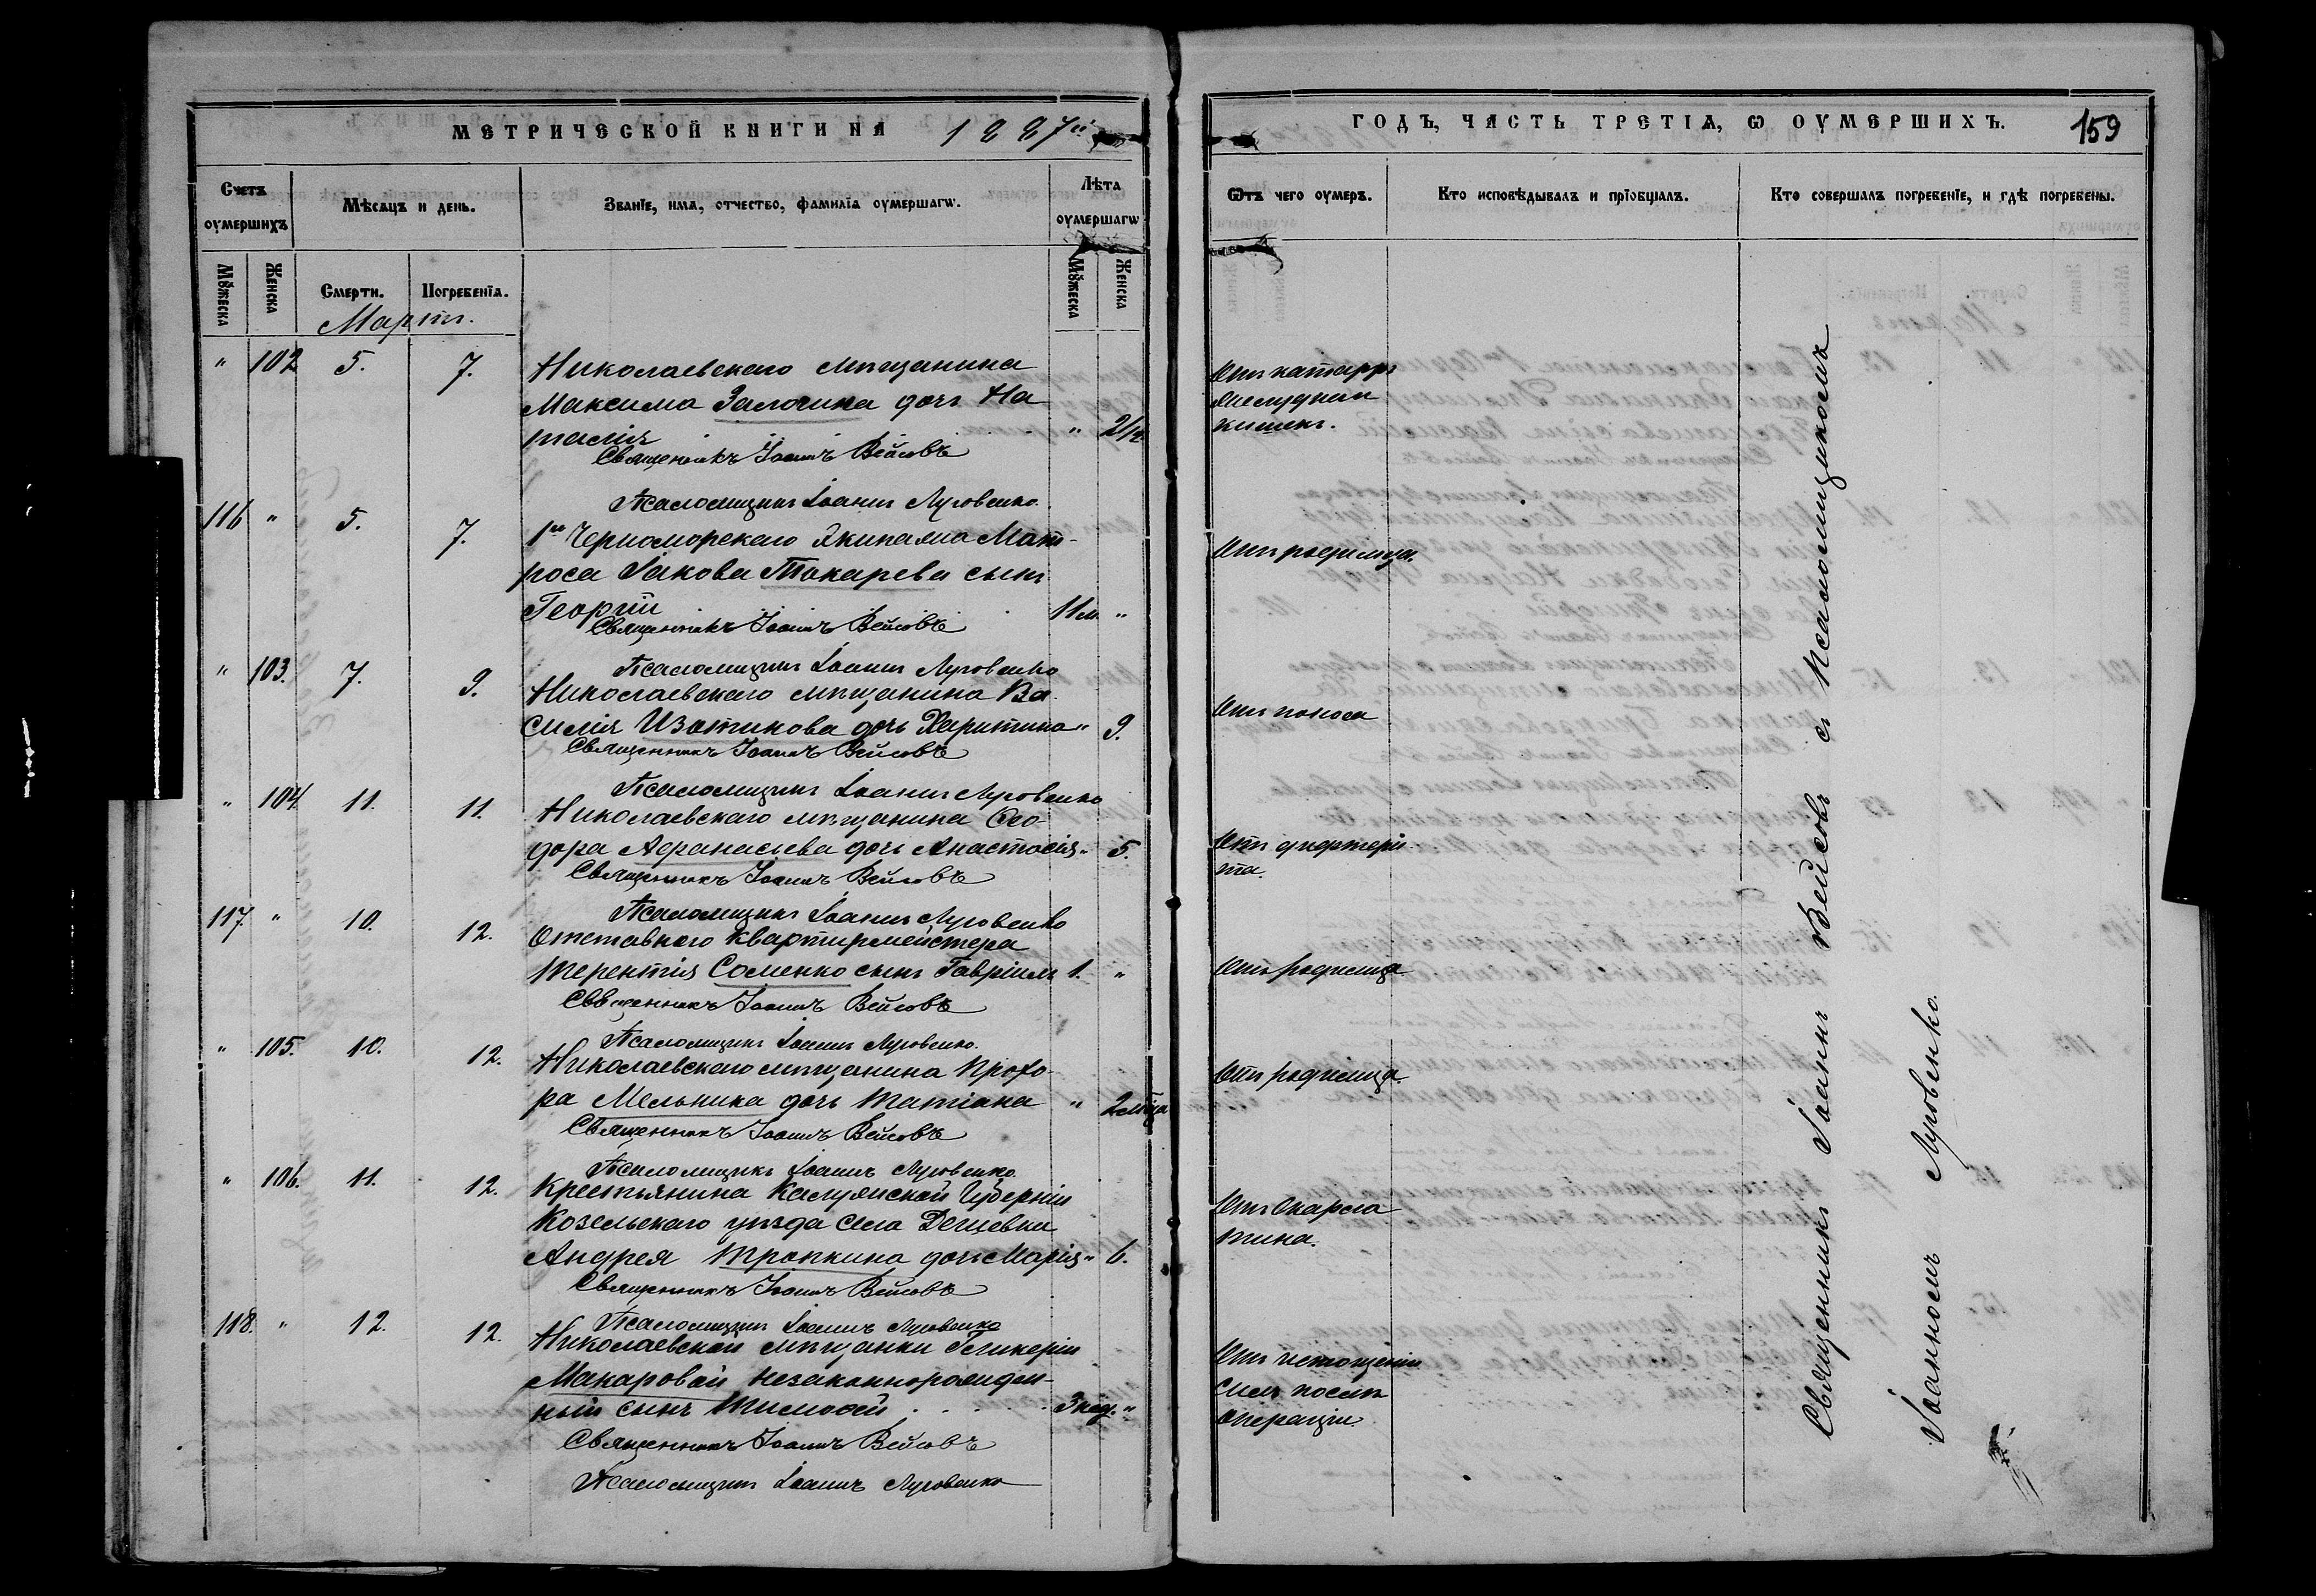 МЕТРИЧЕСКОЙ КНИГИ НА 1887й
Счетъ оумершихъ
Мѣсяцъ и день.
Званіе, имя, отчество, фамилія оумершагѡ.
Лѣта оумершагѡ
Мужеска
Женска
Смерти.
Погребенія.
Мужеска
Женска
Мартъ.
" 102 5. 7. Николаевскаго мѣщанина
Максима Залочина дочь На
талія " 2/12
Священникъ Іоаннъ Вейсовъ
Псаломщикъ Іоаннъ Луговенко.
116 " 5. 7. 1го Черноморскаго Экипажа Мат-
роса Іакова Токарева сынъ
Георгій 11 м. "
Священникъ Іоаннъ Вейсовъ
Псаломщикъ Іоаннъ Луговенко
" 103. 7. 9. Николаевскаго мѣщанина Ва
силія Изотикова дочь Харитина " 9.
Священникъ Іоаннъ Вейсовъ
Псаломщикъ Іоаннъ Луговенко
" 104. 11. 11. Николаевскаго мѣщанина Ѳео-
дора Аѳанасьева дочь Анастасія " 5.
Священникъ Іоаннъ Вейсовъ
Псаломщикъ Іоаннъ Луговенко
117. " 10. 12. Отставнаго квартирмейстера
Терентія Соменко сынъ Гавріилъ 1. "
Священникъ Іоаннъ Вейсовъ
Псаломщикъ Іоаннъ Луговенко.
" 105. 10. 12. Николаевскаго мѣщанина Прохо-
ра Мельника дочь Татіана " 2 мѣца
Священникъ Іоаннъ Вейсовъ
Псаломщикъ Іоаннъ Луговенко.
" 106. 11. 12. Крестьянина Калужской Губерніи
Козельскаго уѣзда села Дешевки
Андрея Тропкина дочь Марія " 6.
Священникъ Іоаннъ Вейсовъ
Псаломщикъ Іоаннъ Луговенко
118. " 12. 12. Николаевской мѣщанки Гликеріи
Макаровой незаконнорожден-
ный сынъ Тимоѳей 3 нед. "
Священникъ Іоаннъ Вейсовъ
Псаломщикъ Іоаннъ Луговенко
ГОДЪ, ЧАСТЬ ТРЕТІЯ, Ѡ ОУМЕРШИХЪ. 159
Ѿтъ чего оумеръ.
Кто исповѣдывалъ и пріобщалъ.
Кто совершалъ погребеніе, и гдѣ погребены.
Отъ катарра
желудка и
кишекъ.
Отъ родимца.
Отъ поноса
Отъ дифтери
та.
Отъ родимца
Отъ родимца.
Отъ скарла
тина.
Отъ истощенія
силъ послѣ
операціи.
Священникъ Іоаннъ Вейсовъ съ Псаломщикомъ
Іоанномъ Луговенко.